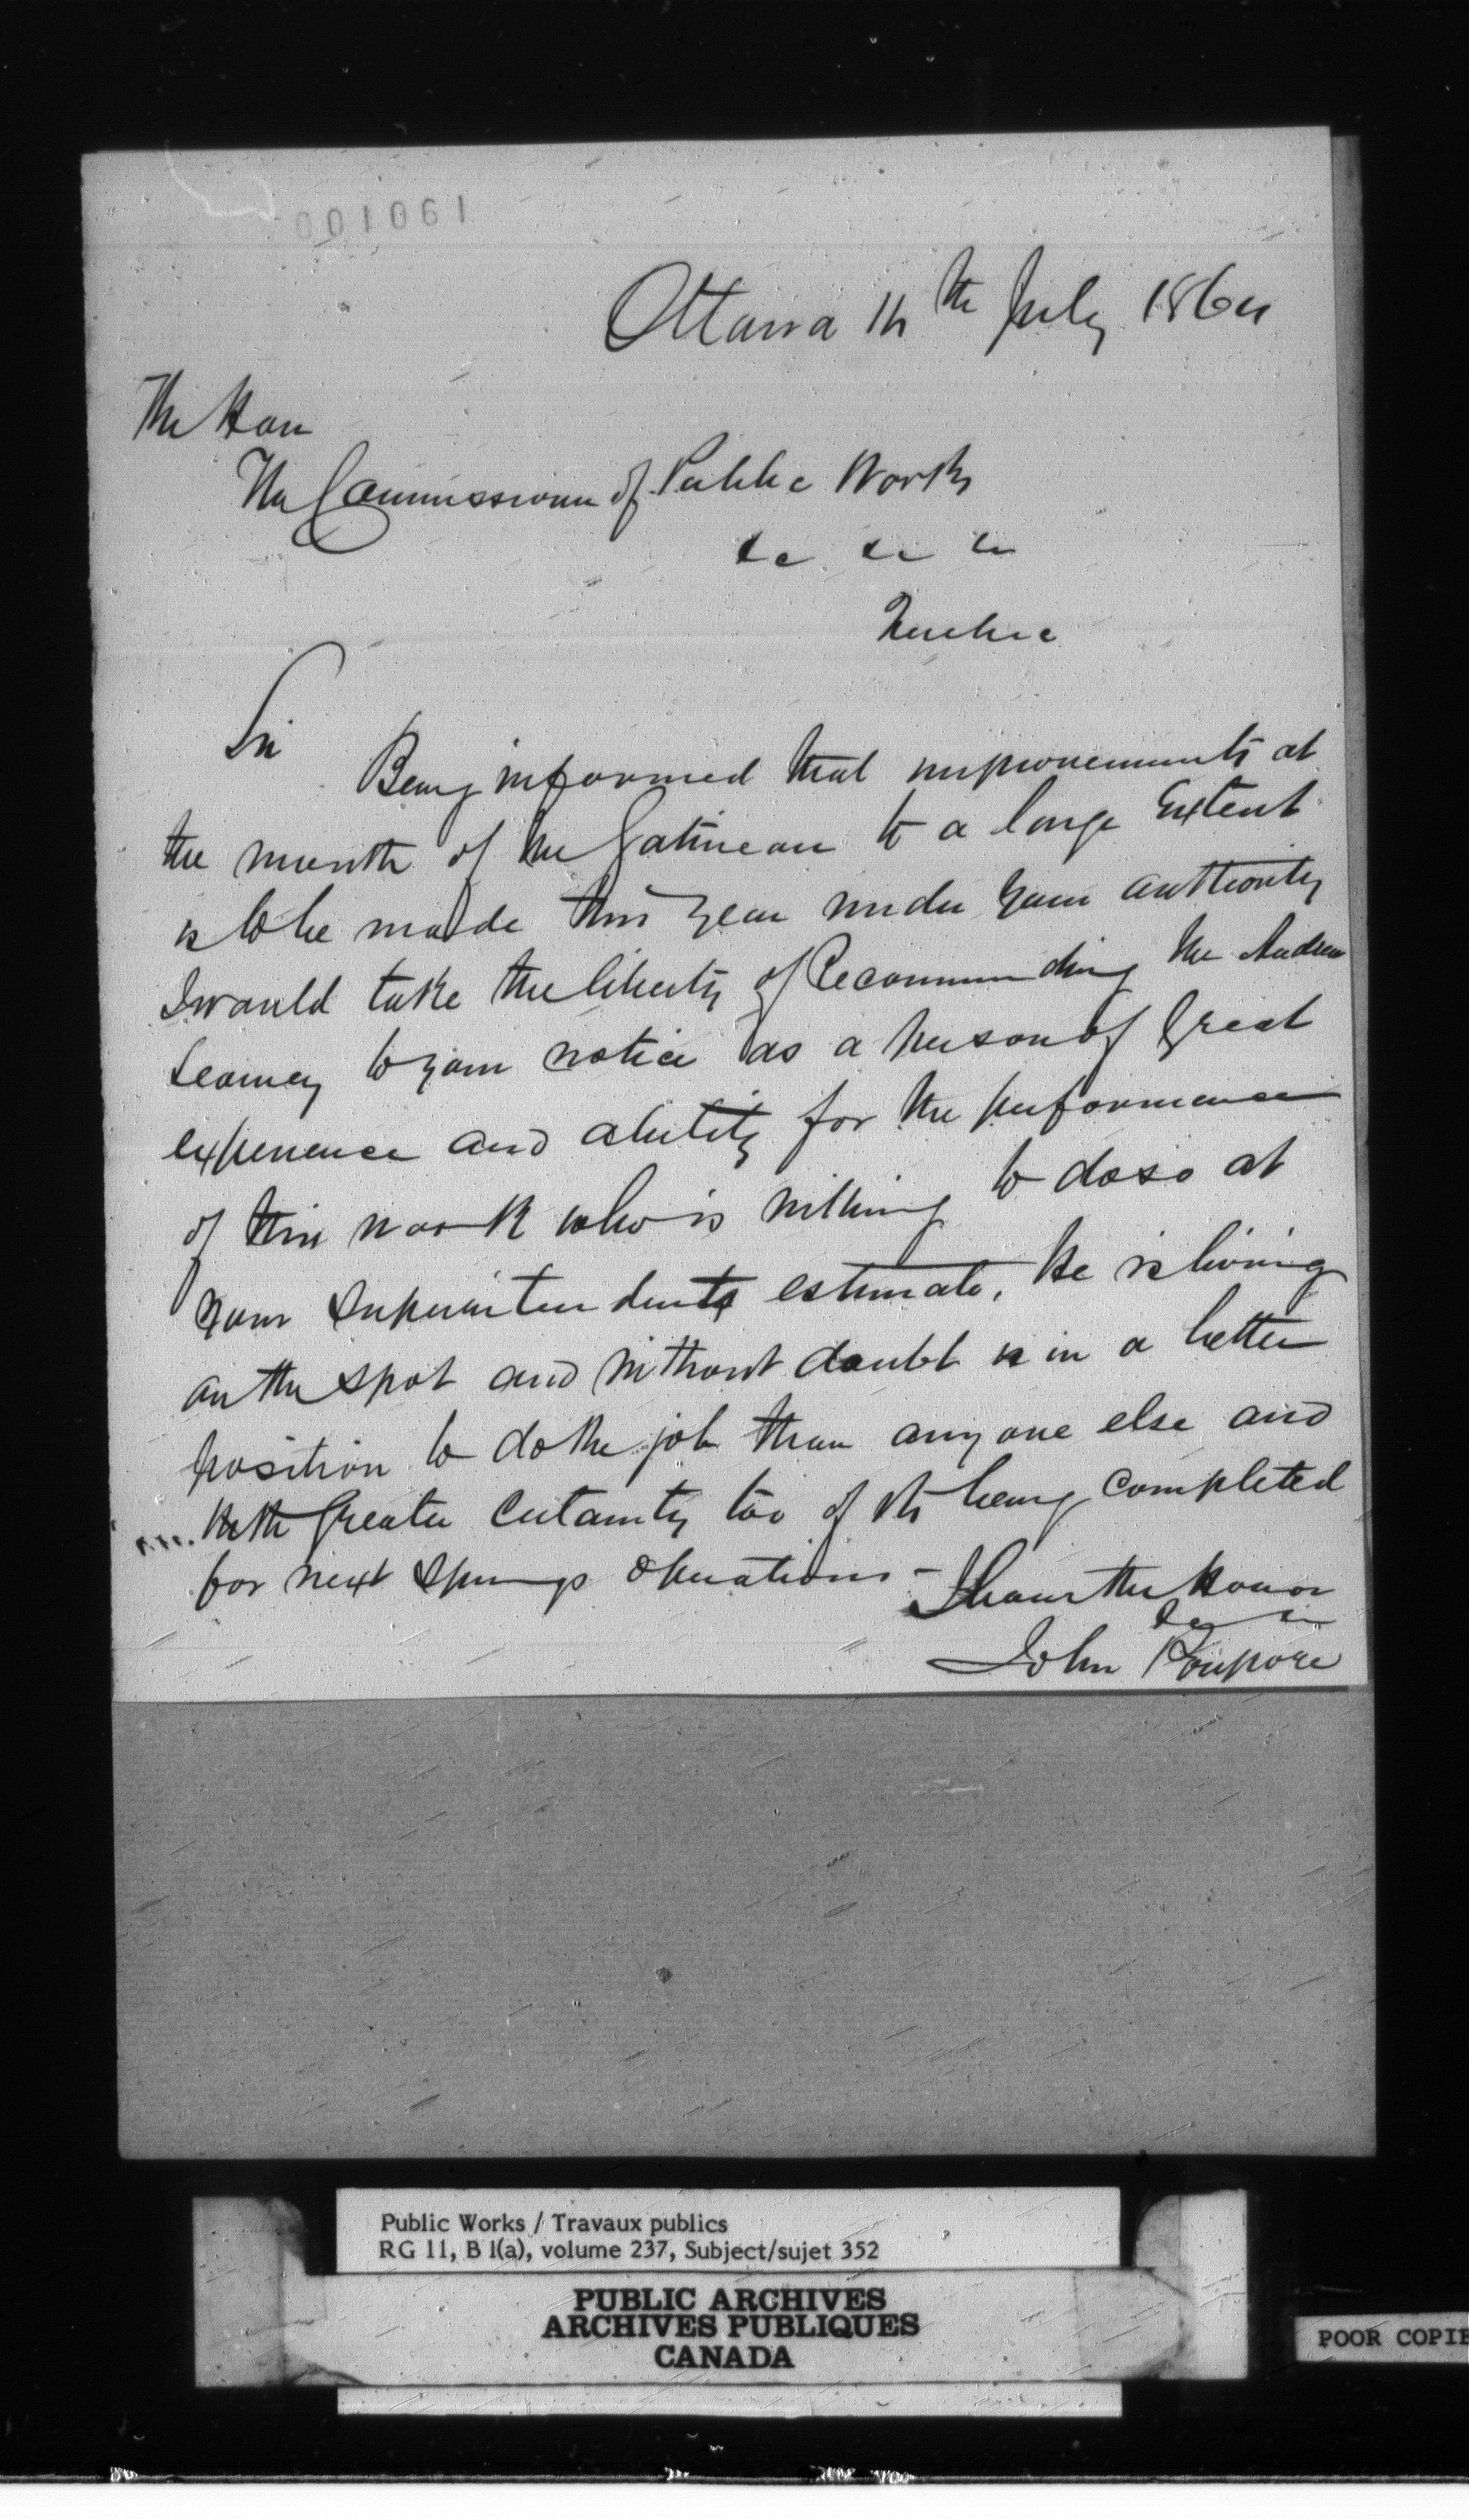 001061
Ottawa 14th July 1864
The Hon
The Commissioner of Public Works
&c &c &c
Quebec
Sir Being informed that improvements at
the mouth of the Gatineau to a large Extent
is to be made this year under your authority
I would take the liberty of Recommending Mr Andrew
Leamey to your notice as a person of Great
experience and ability for the performance
of this work who is willing to do so at
your Superintendents estimate, He is living
on the spot and without doubt is in a better
position to do the job than anyone else and
with Greater Certainty too of its being completed
for next Springs Operations -
I have the honor
&c &c
John Poupore
Public Works / Travaux publics
RG 11, B 1(a), volume 237, Subject/sujet 352
PUBLIC ARCHIVES
ARCHIVES PUBLIQUES
CANADA
POOR COPIE